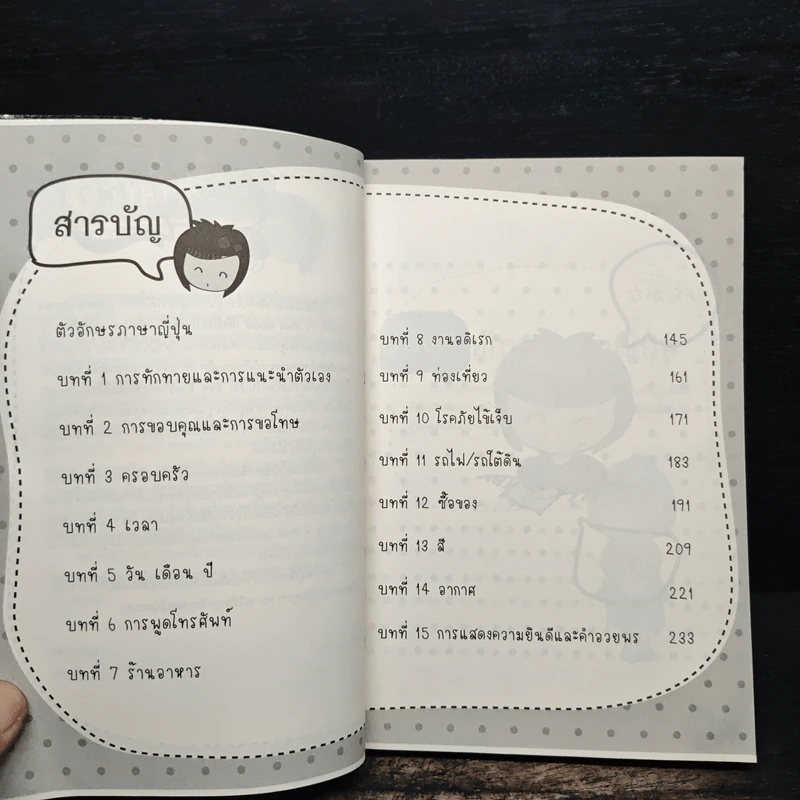 สารบัญ
ตัวอักษรภาษาญี่ปุ่น
บทที่ 1 การทักทายและการแนะนำตัวเอง
บทที่ 2 การขอบคุณและการขอโทษ
บทที่ 3 ครอบครัว
บทที่ 4 เวลา
บทที่ 5 วัน เดือน ปี
บทที่ 6 การพูดโทรศัพท์
บทที่ 7 ร้านอาหาร
บทที่ 8 งานอดิเรก 145
บทที่ 9 ท่องเที่ยว 161
บทที่ 10 โรคภัยไข้เจ็บ 171
บทที่ 11 รถไฟ/รถใต้ดิน 183
บทที่ 12 ซื้อของ 191
บทที่ 13 สี 209
บทที่ 14 อากาศ 221
บทที่ 15 การแสดงความยินดีและคำอวยพร 233